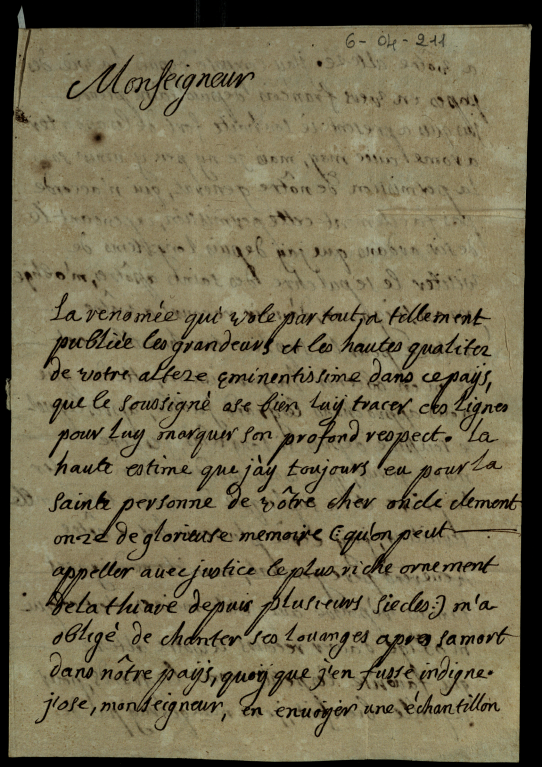 6-04-211
Monseigneur
La renomée qui vole par tout, a tillement
publiée les grandeurs et les hautes qualitez
de votre alteze eminentissime dans ce païjs,
que le soussigné ose bien luij tracer ces lignes
pour luy marquer son profond respect. La
haute estime que j'aÿ toujours eu pour la
sainte personne de vôtre cher oncle clement
onze de glorieuse memoire (: qu'on peut
appeller avec justice le plus riche ornement
de la thiare depuis plusieurs siecles :) m'a
obligé de chanter ses louanges apres sa mort
dans nôtre païjs, quoy que j'en fusse indigne.
j'ose, monseigneur, en envoyer une échantillon